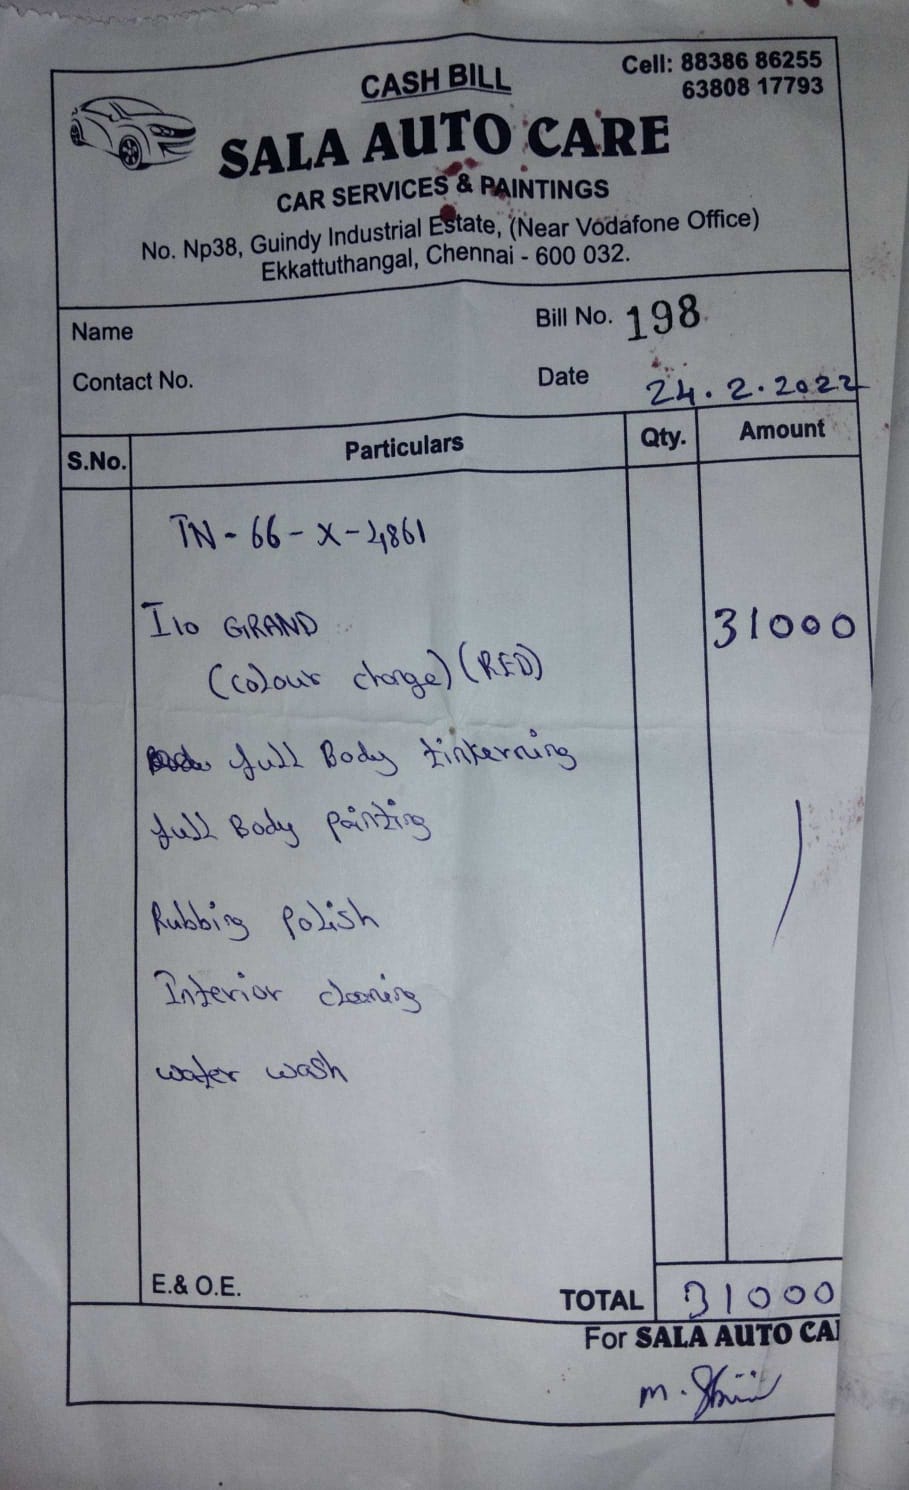 CASH BILL
Cell: 88386 86255
63808 17793
SALA AUTO CARE
CAR SERVICES & PAINTINGS
No. Np38, Guindy Industrial Estate, (Near Vodafone Office)
Ekkattuthangal, Chennai - 600 032.
Name
Bill No. 198
Contact No.
Date 24.2.2022
S.No. Particulars Qty. Amount
TN-66-X-4861
I10 GRAND 31000
(colour change) (RED)
full Body tinkerning
full Body painting
Rubbing polish
Interior cleaning
water wash
E.& O.E.
TOTAL 31000
For SALA AUTO CA
m.